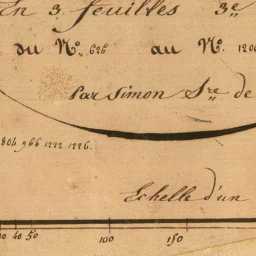 En 3 feuilles 3e
du No. 626 au No. 1200
Par Simon Sre de
804 966 1222 1226.
Echelle d'un
30 40 50 100 150